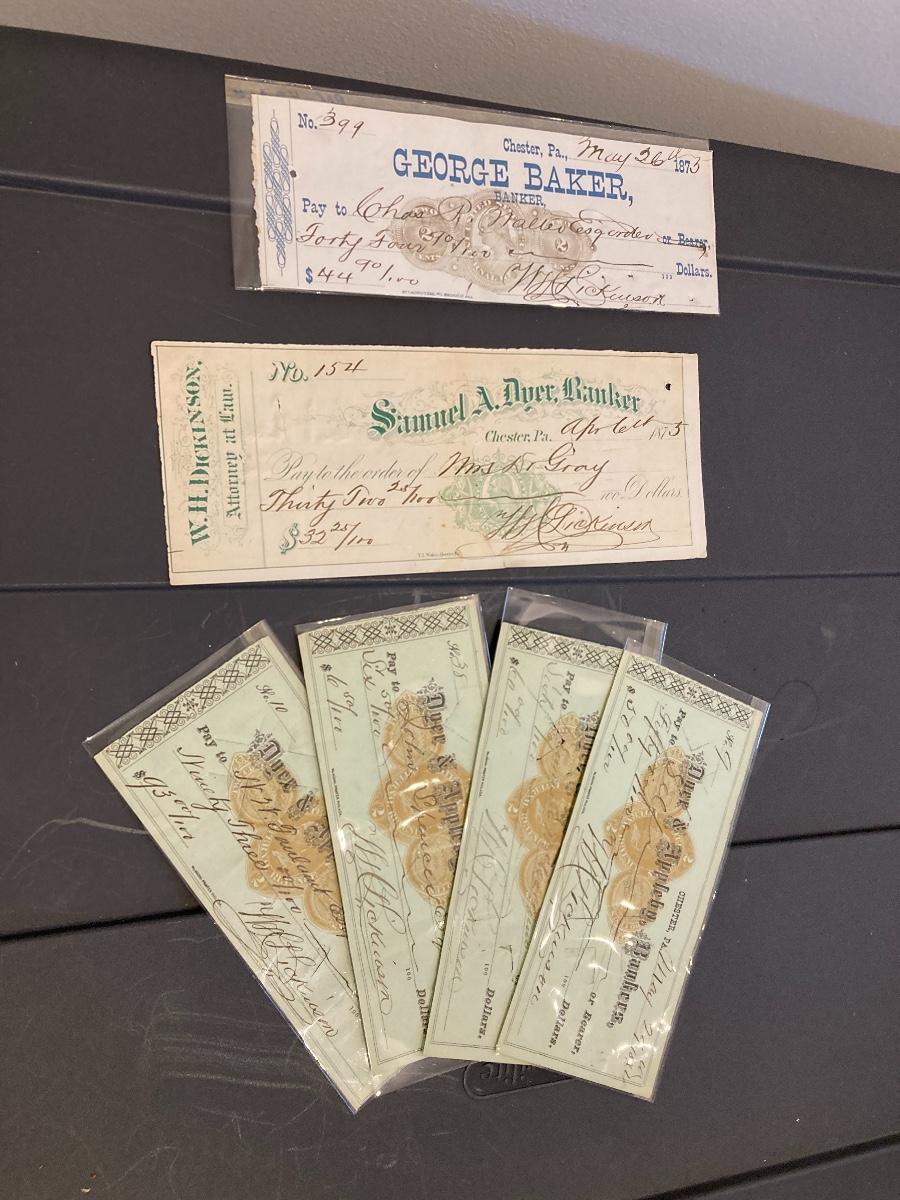 No. 399
Chester, Pa., May 26th 1875
GEORGE BAKER,
BANKER,
Pay to Chas R. Walter Esq order or Bearer,
Forty Four 90/100 Dollars.
$44 90/100 W H Dickinson
W. H. DICKINSON.
Attorney at Law.
No. 154
Samuel A. Dyer, Banker
Chester, Pa. Apr 6th 1875
Pay to the order of Mrs Dr Gray
Thirty Two 25/100 100 Dollars
$32 25/100 W H Dickinson
No. 10
Dyer &
Pay to
Ninety Three 00/100
$93 00/100 W H Dickinson
No. 38
Dyer & Apple
Pay to John
Six 50/100 100 Dollars
$6 50/100 W H Dickinson
Dyer
Pay to
100 Dollars.
$60 W H Dickinson
No. 9
CHESTER, PA. May
Dyer & Appleby, Bankers,
Pay to or Bearer,
Fifty 100 Dollars.
$50 00/100 W H Dickinson